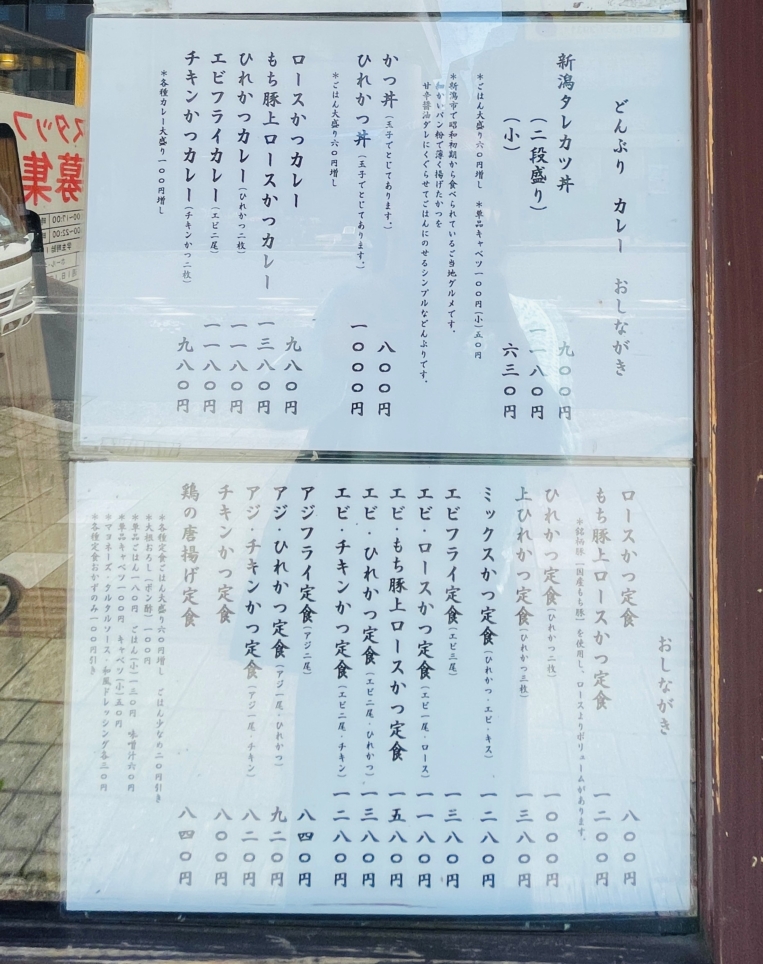 どんぶり カレー おしながき
新潟タレカツ丼 九〇〇円
(二段盛り) 一一八〇円
(小) 六三〇円
＊ごはん大盛り六〇円増し ＊単品キャベツ一〇〇円(小)五〇円
＊新潟市で昭和初期から食べられているご当地グルメです。
細かいパン粉で薄く揚げたかつを
甘辛醤油ダレにくぐらせてごはんにのせるシンプルなどんぶりです。
かつ丼(玉子でとじてあります。) 八〇〇円
ひれかつ丼(玉子でとじてあります。) 一〇〇〇円
＊ごはん大盛り六〇円増し
ロースかつカレー 九八〇円
もち豚上ロースかつカレー 一三八〇円
ひれかつカレー(ひれかつ二枚) 一一八〇円
エビフライカレー(エビ二尾) 一一八〇円
チキンかつカレー(チキンかつ二枚) 九八〇円
＊各種カレー大盛り一〇〇円増し
おしながき
ロースかつ定食 八〇〇円
もち豚上ロースかつ定食 一二〇〇円
＊銘柄豚「国産もち豚」を使用し、ロースよりボリュームがあります。
ひれかつ定食(ひれかつ二枚) 一〇〇〇円
上ひれかつ定食(ひれかつ三枚) 一三八〇円
ミックスかつ定食(ひれかつ・エビ・キス) 一二八〇円
エビフライ定食(エビ三尾) 一三八〇円
エビ・ロースかつ定食(エビ一尾・ロース) 一一八〇円
エビ・もち豚上ロースかつ定食 一五八〇円
エビ・ひれかつ定食(エビ二尾・ひれかつ) 一三八〇円
エビ・チキンかつ定食(エビ二尾・チキン) 一二八〇円
アジフライ定食(アジ二尾) 八四〇円
アジ・ひれかつ定食(アジ一尾・ひれかつ) 九二〇円
アジ・チキンかつ定食(アジ一尾・チキン) 八二〇円
チキンかつ定食 八〇〇円
鶏の唐揚げ定食 八四〇円
＊各種定食ごはん大盛り六〇円増し ごはん少なめ二〇円引き
＊大根おろし(ポン酢)一〇〇円
＊単品ごはん一八〇円 ごはん(小)一三〇円 味噌汁六〇円
＊単品キャベツ一〇〇円 キャベツ(小)五〇円
＊マヨネーズ・タルタルソース・和風ドレッシング各三〇円
＊各種定食おかずのみ一〇〇円引き
スタッフ
募集